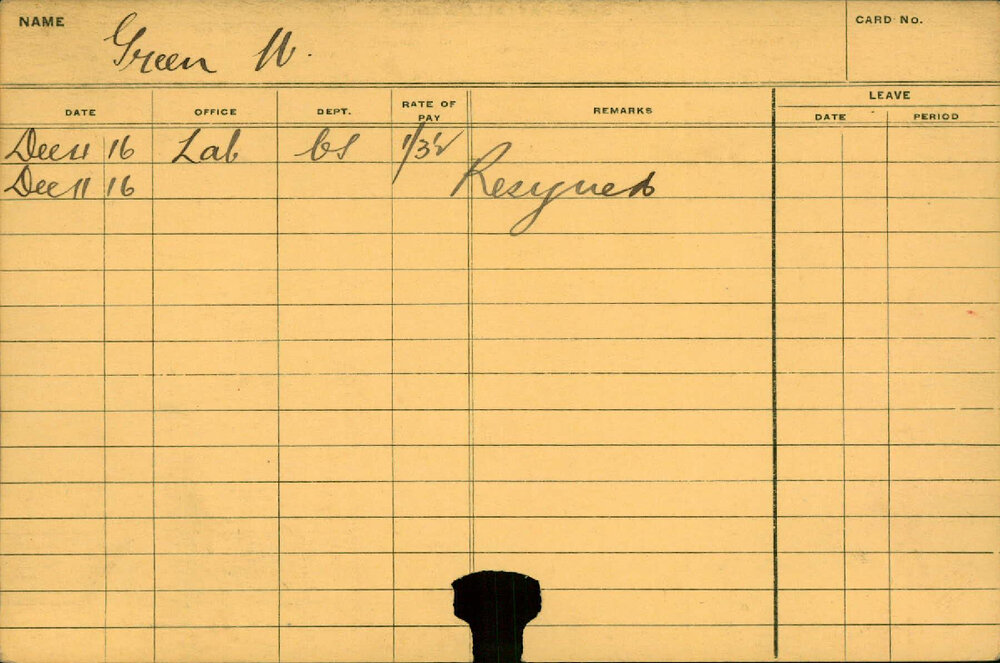 NAME Green W. CARD No.
LEAVE
DATE OFFICE DEPT. RATE OF PAY REMARKS DATE PERIOD
Dec 11 16 Lab
Dec 11 16 Resigned